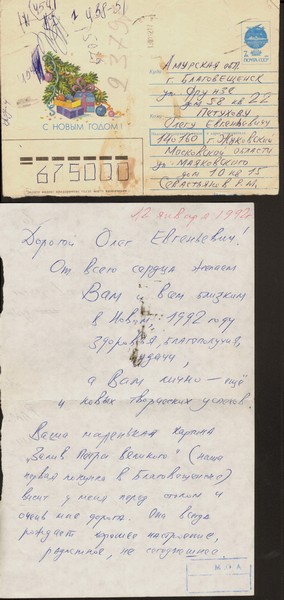 Амурская обл
г. Благовещенск
ул Фрунзе
дом 58 кв 22
Петухову
Олегу Евгеньевичу
140160 г. Жуковский
Московской области
ул Маяковского
дом 10 кв 15
ПОЧТА СССР
С НОВЫМ ГОДОМ!
675000
12 января 1992
Дорогой Олег Евгеньевич!
От всего сердца желаем
Вам и вам близким
в Новом 1992 году
здоровья, благополучия,
удачи,
а Вам лично — ещё
и новых творческих успехов.
Ваша маленькая картина
„Залив Петра Великого" (наша
первая покупка в Благовещенске)
висит у меня перед столом и
очень мне дорога. Она всегда
рождает хорошее настроение,
радостное, не сегодняшнее